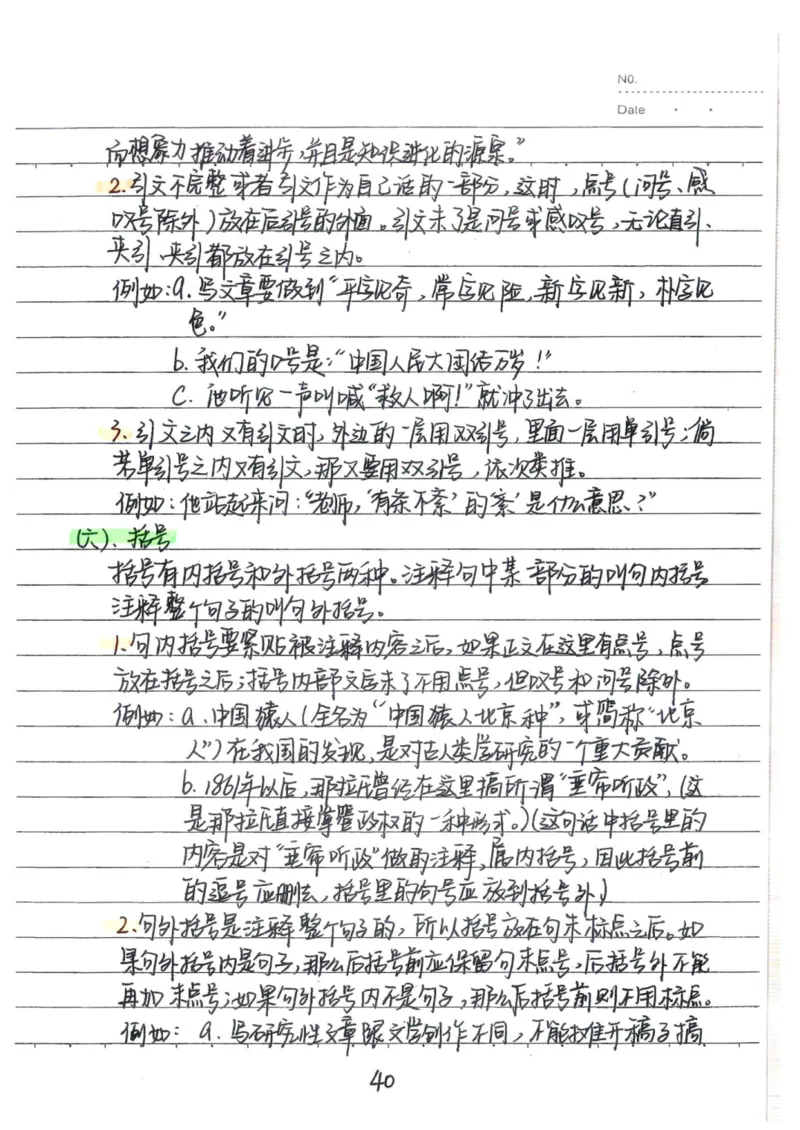 NO.
Date
而想象力推动着进步,并且是知识进化的源泉。”
2.引文不完整或者引文作为自己话的一部分,这时,点号(问号、感
叹号除外)放在后引号的外面。引文末了是问号或感叹号,无论直引、
夹引都放在引号之内。
例如:a.写文章要做到“平字见奇,常字见险,新字见新,朴字见
色。”
b.我们的口号是:“中国人民大团结万岁!”
C.他听见一声叫喊“救人啊!”就冲了出去。
3.引文之内又有引文时,外边的一层用双引号,里面一层用单引号;倘
若单引号之内又有引文,那又要用双引号,依次类推。
例如:他站起来问:“老师,‘有条不紊’的‘紊’是什么意思?”
(六)、括号
括号有内括号和外括号两种。注释句中某一部分的叫句内括号
注释整个句子的叫句外括号。
1.句内括号要紧贴被注释内容之后,如果正文在这里有点号,点号
放在括号之后;括号内部文字末了不用点号,但叹号和问号除外。
例如:a.中国猿人(全名为“中国猿人北京种”,或简称“北京
人”)在我国的发现,是对古人类学研究的一个重大贡献。
b.1861年以后,那拉氏曾经在这里搞所谓“垂帘听政”,(这
是那拉氏直接掌握政权的一种形式。)(这句话中括号里的
内容是对“垂帘听政”做的注释,属内括号,因此括号前
的逗号应删去,括号里的句号应放到括号外)
2.句外括号是注释整个句子的,所以括号放在句末标点之后。如
果句外括号内是句子,那么后括号前应保留句末点号,后括号外不能
再加末点号;如果句外括号内不是句子,那么后括号前则不用标点。
例如:a.写研究性文章跟文学创作不同,不能摊开稿子搞
40